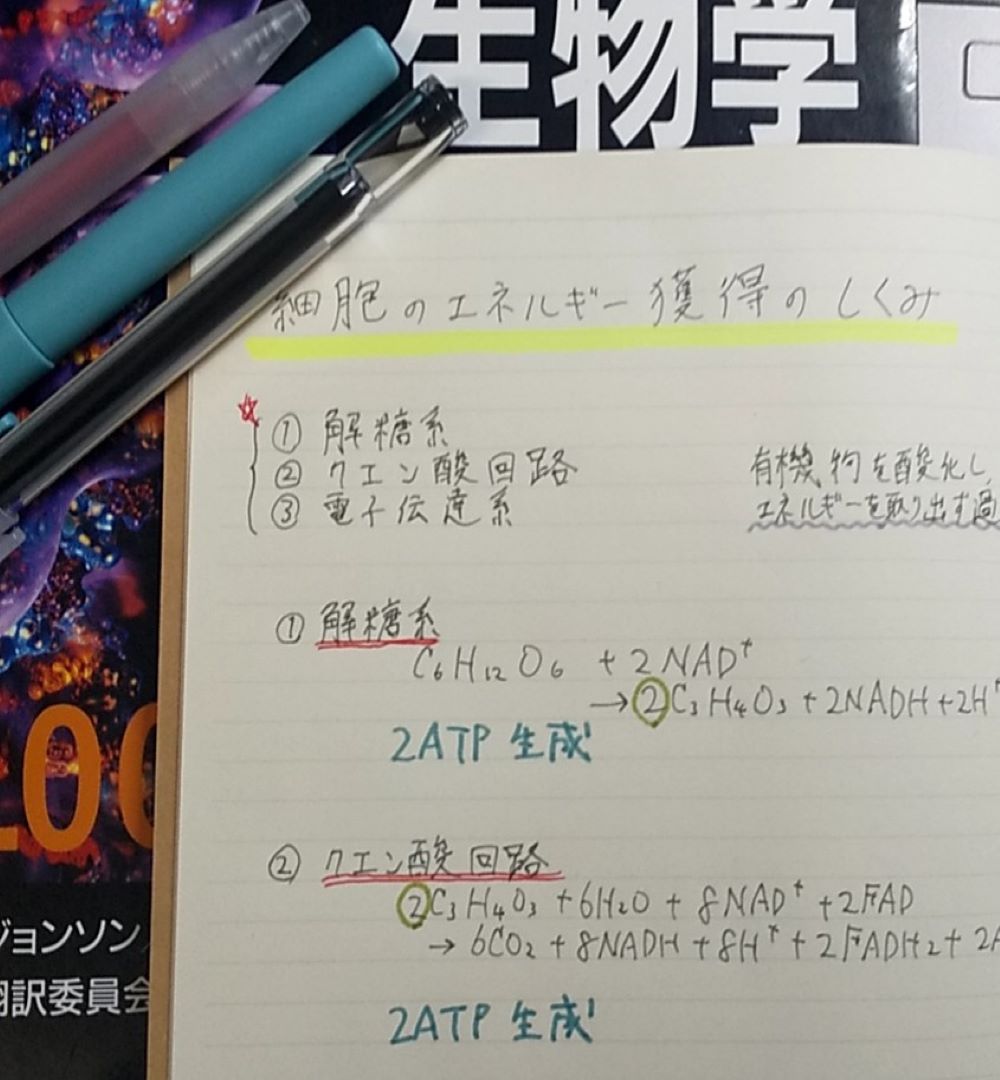 生物学
細胞のエネルギー獲得のしくみ
① 解糖系
② クエン酸回路
③ 電子伝達系
有機物を酸化し、
エネルギーを取り出す過
① 解糖系
C₆H₁₂O₆ + 2NAD⁺
→ 2C₃H₄O₃ + 2NADH + 2H⁺
2ATP 生成
② クエン酸回路
2C₃H₄O₃ + 6H₂O + 8NAD⁺ + 2FAD
→ 6CO₂ + 8NADH + 8H⁺ + 2FADH₂ + 2A
2ATP 生成
ジョンソン
翻訳委員会